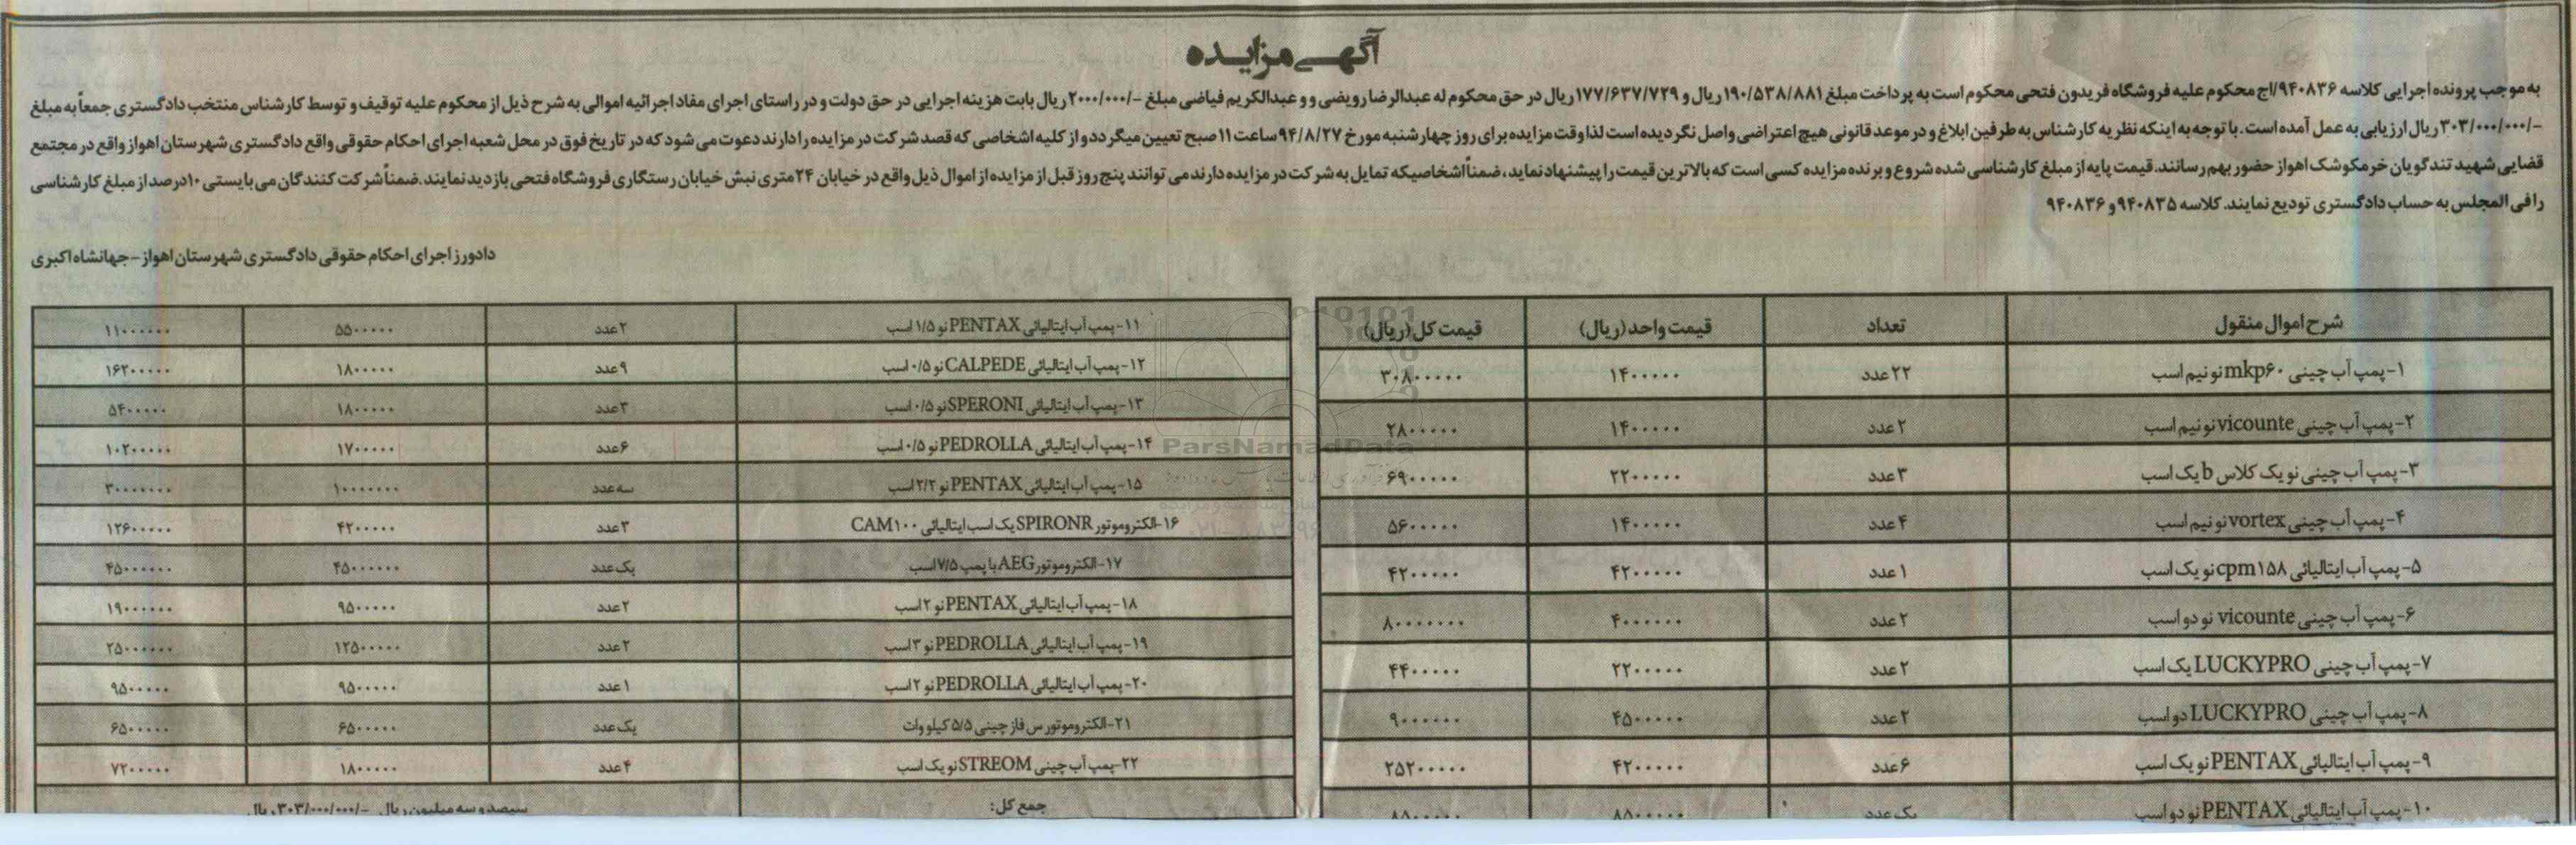 آگهی مزایده
به موجب پرونده اجرایی کلاسه ۹۴۰۸۳۶/اج محکوم علیه فروشگاه فریدون فتحی محکوم است به پرداخت مبلغ ۱۹۰/۵۳۸/۸۸۱ ریال و ۱۷۷/۶۳۷/۷۲۹ ریال در حق محکوم له عبدالرضا رویضی و و عبدالکریم فیاضی مبلغ -/۲۰۰۰/۰۰۰ ریال بابت هزینه اجرایی در حق دولت و در راستای اجرای مفاد اجرائیه اموالی به شرح ذیل از محکوم علیه توقیف و توسط کارشناس منتخب دادگستری جمعاً به مبلغ
-/۳۰۳/۰۰۰/۰۰۰ ریال ارزیابی به عمل آمده است. با توجه به اینکه نظریه کارشناس به طرفین ابلاغ و در موعد قانونی هیچ اعتراضی واصل نگردیده است لذا وقت مزایده برای روز چهارشنبه مورخ ۹۴/۸/۲۷ ساعت ۱۱ صبح تعیین میگردد و از کلیه اشخاصی که قصد شرکت در مزایده را دارند دعوت می شود که در تاریخ فوق در محل شعبه اجرای احکام حقوقی واقع دادگستری شهرستان اهواز واقع در مجتمع
قضایی شهید تندگویان خرمکوشک اهواز حضور بهم رسانند. قیمت پایه از مبلغ کارشناسی شده شروع و برنده مزایده کسی است که بالاترین قیمت را پیشنهاد نماید، ضمناً اشخاصیکه تمایل به شرکت در مزایده دارند می توانند پنج روز قبل از مزایده از اموال ذیل واقع در خیابان ۲۴ متری نبش خیابان رستگاری فروشگاه فتحی بازدید نمایند. ضمناً شرکت کنندگان می بایستی ۱۰ درصد از مبلغ کارشناسی
را فی المجلس به حساب دادگستری تودیع نمایند. کلاسه ۹۴۰۸۳۵ و ۹۴۰۸۳۶
دادورز اجرای احکام حقوقی دادگستری شهرستان اهواز - جهانشاه اکبری
شرح اموال منقول تعداد قیمت واحد (ریال) قیمت کل (ریال)
۱- پمپ آب چینی mkp۶۰ نو نیم اسب ۲۲ عدد ۱۴۰۰۰۰۰ ۳۰۸۰۰۰۰۰
۲- پمپ آب چینی vicounte نو نیم اسب ۲ عدد ۱۴۰۰۰۰۰ ۲۸۰۰۰۰۰
۳- پمپ آب چینی نو یک کلاس b یک اسب ۳ عدد ۲۲۰۰۰۰۰ ۶۹۰۰۰۰۰
۴- پمپ آب چینی vortex نو نیم اسب ۴ عدد ۱۴۰۰۰۰۰ ۵۶۰۰۰۰۰
۵- پمپ آب ایتالیائی cpm۱۵۸ نو یک اسب ۱ عدد ۴۲۰۰۰۰۰ ۴۲۰۰۰۰۰
۶- پمپ آب چینی vicounte نو دو اسب ۲ عدد ۴۰۰۰۰۰۰ ۸۰۰۰۰۰۰۰
۷- پمپ آب چینی LUCKYPRO یک اسب ۲ عدد ۲۲۰۰۰۰۰ ۴۴۰۰۰۰۰
۸- پمپ آب چینی LUCKYPRO دو اسب ۲ عدد ۴۵۰۰۰۰۰ ۹۰۰۰۰۰۰
۹- پمپ آب ایتالیائی PENTAX نو یک اسب ۶ عدد ۴۲۰۰۰۰۰ ۲۵۲۰۰۰۰۰
۱۰- پمپ آب ایتالیائی PENTAX نو دو اسب یک عدد ۸۵۰۰۰۰۰ ۸۵۰۰۰۰۰
۱۱- پمپ آب ایتالیائی PENTAX نو ۱/۵ اسب ۲ عدد ۵۵۰۰۰۰۰ ۱۱۰۰۰۰۰۰
۱۲- پمپ آب ایتالیائی CALPEDE نو ۰/۵ اسب ۹ عدد ۱۸۰۰۰۰۰ ۱۶۲۰۰۰۰۰
۱۳- پمپ آب ایتالیائی SPERONI نو ۰/۵ اسب ۳ عدد ۱۸۰۰۰۰۰ ۵۴۰۰۰۰۰
۱۴- پمپ آب ایتالیائی PEDROLLA نو ۰/۵ اسب ۶ عدد ۱۷۰۰۰۰۰ ۱۰۲۰۰۰۰۰
۱۵- پمپ آب ایتالیائی PENTAX نو ۲/۲ اسب سه عدد ۱۰۰۰۰۰۰۰ ۳۰۰۰۰۰۰۰
۱۶- الکتروموتور SPIRONR یک اسب ایتالیائی CAM۱۰۰ ۳ عدد ۴۲۰۰۰۰۰ ۱۲۶۰۰۰۰۰
۱۷- الکتروموتور AEG با پمپ ۷/۵ اسب یک عدد ۴۵۰۰۰۰۰۰ ۴۵۰۰۰۰۰۰
۱۸- پمپ آب ایتالیائی PENTAX نو ۲ اسب ۲ عدد ۹۵۰۰۰۰۰ ۱۹۰۰۰۰۰۰
۱۹- پمپ آب ایتالیائی PEDROLLA نو ۳ اسب ۲ عدد ۱۲۵۰۰۰۰۰ ۲۵۰۰۰۰۰۰
۲۰- پمپ آب ایتالیائی PEDROLLA نو ۲ اسب ۱ عدد ۹۵۰۰۰۰۰ ۹۵۰۰۰۰۰
۲۱- الکتروموتور س فاز چینی ۵/۵ کیلو وات یک عدد ۶۵۰۰۰۰۰ ۶۵۰۰۰۰۰
۲۲- پمپ آب چینی STREOM نو یک اسب ۴ عدد ۱۸۰۰۰۰۰ ۷۲۰۰۰۰۰
جمع کل: سیصد و سه میلیون ریال -/۳۰۳/۰۰۰/۰۰۰ ریال
ParsNamadData